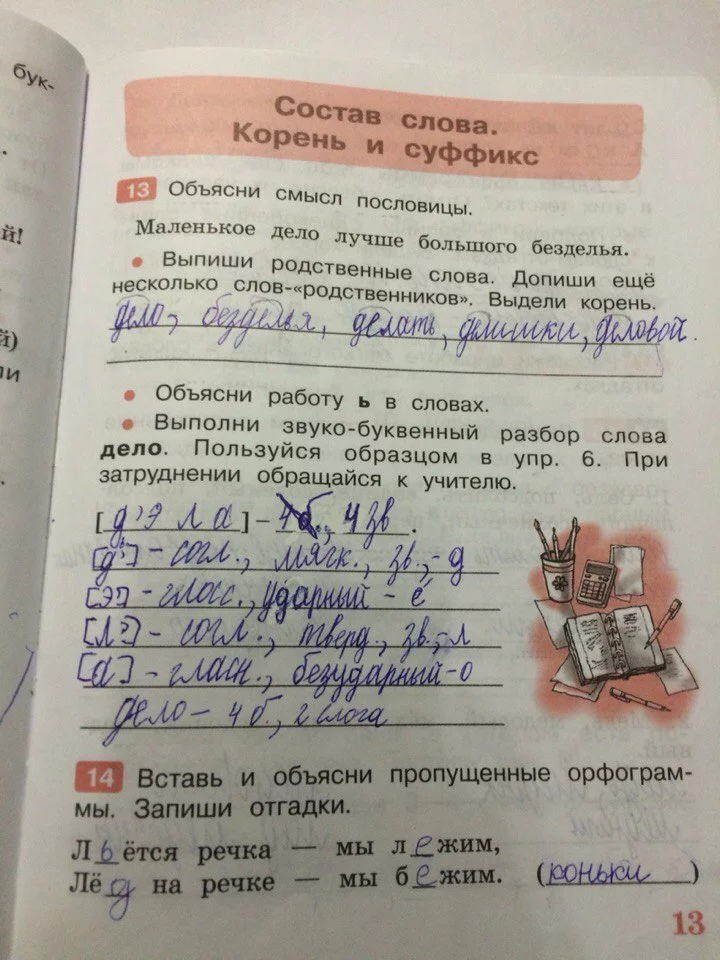 бук-
й!
й)
ли
Состав слова.
Корень и суффикс
13 Объясни смысл пословицы.
Маленькое дело лучше большого безделья.
• Выпиши родственные слова. Допиши ещё
несколько слов-«родственников». Выдели корень.
дело, безделья, делать, делишки, деловой.
• Объясни работу ь в словах.
• Выполни звуко-буквенный разбор слова
дело. Пользуйся образцом в упр. 6. При
затруднении обращайся к учителю.
[д'эла] – 4 б., 4 зв.
[д'] – согл., мягк., зв., – д
[э] – гласс., ударный – е
[л] – согл., тверд., зв., – л
[а] – гласн., безударный – о
дело – 4 б., 2 слога
14 Вставь и объясни пропущенные орфограм-
мы. Запиши отгадки.
Льётся речка — мы лежим,
Лёд на речке — мы бежим. (коньки)
13